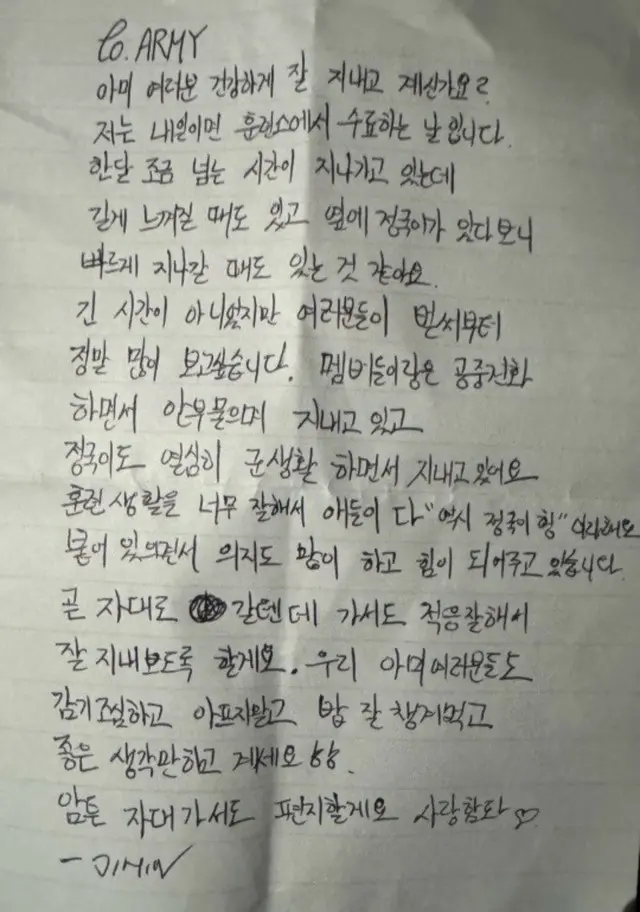 to. ARMY
아미 여러분 건강하게 잘 지내고 계신가요?
저는 내일이면 훈련소에서 수료하는 날 입니다.
한달 조금 넘는 시간이 지나가고 있는데
길게 느껴질 때도 있고 옆에 정국이가 있다보니
빠르게 지나갈 때도 있는 것 같아요.
긴 시간이 아니였지만 여러분들이 벌써부터
정말 많이 보고싶습니다. 멤버들이랑은 공중전화
하면서 안부물으며 지내고 있고
정국이도 열심히 군생활 하면서 지내고있어요
훈련생활을 너무 잘해서 애들이 다 "역시 정국이 형" 이라해요
붙어 있으면서 의지도 많이 하고 힘이 되어주고 있습니다.
곧 자대로 갈텐데 가서도 적응잘해서
잘 지내보도록 할게요. 우리 아미여러분들도
감기조심하고 아프지말고 밥 잘 챙겨먹고
좋은 생각만하고 계세요 ㅎㅎ.
암튼 자대가서도 편지할게요 사랑함돠♡
- JIMIN